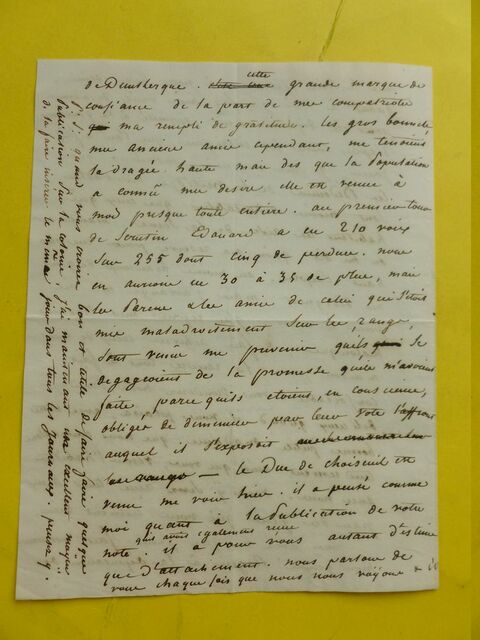 de Dunkerque. cette grande marque de
confiance de la part de mes compatriotes
ma rempli de gratitude. les gros bonnets,
mes anciens amis cependant, me tenoient
la dragée haute mais des que la population
a connû mes desirs elle est venue à
moi presque toute entiere. au premier tour
de scrutin Edouard a eu 210 voix
sur 255 dont cinq de perdues. nous
en aurions eu 30 à 35 de plus, mais
les parens & les amis de celui qui s'étoit
mis maladroitement sur les rangs,
sont venûs me prevenir quils se
degageoient de la promesse quils m'avoient
faite parce quils etoient, en conscience,
obligés de diminuer par leur vote l'affront
auquel il s'exposoit
le Duc de choiseul est
venu me voir hier. il a pensé comme
moi quant a la publication de votre
note. que javois egalement remise
il a pour vous autant d'estime
que d'attachement. nous parlons de
vous chaque fois que nous nous voyons &
P.S. quand vous croirez bon et utile de faire faire quelque
publication sur la colonie, j'ai maintenant un excellent moyen
de la faire inserer le même jour dans tous les journaux. pensez y.